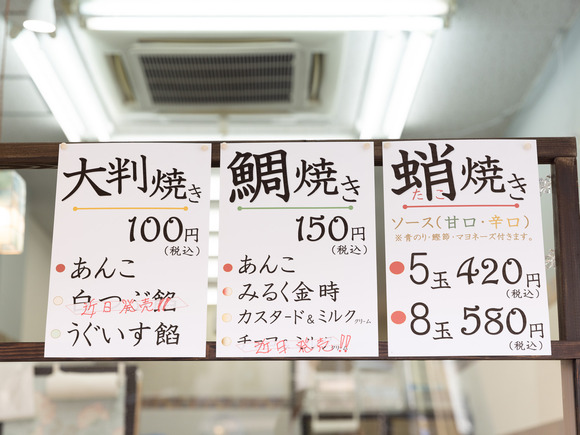 大判焼き
100円
(税込)
あんこ
白つぶ餡
近日発売!!
うぐいす餡
鯛焼き
150円
(税込)
あんこ
みるく金時
カスタード&ミルククリーム
近日発売!!
蛸焼き
たこ
ソース(甘口・辛口)
※青のり・鰹節・マヨネーズ付きます。
5玉 420円
(税込)
8玉 580円
(税込)